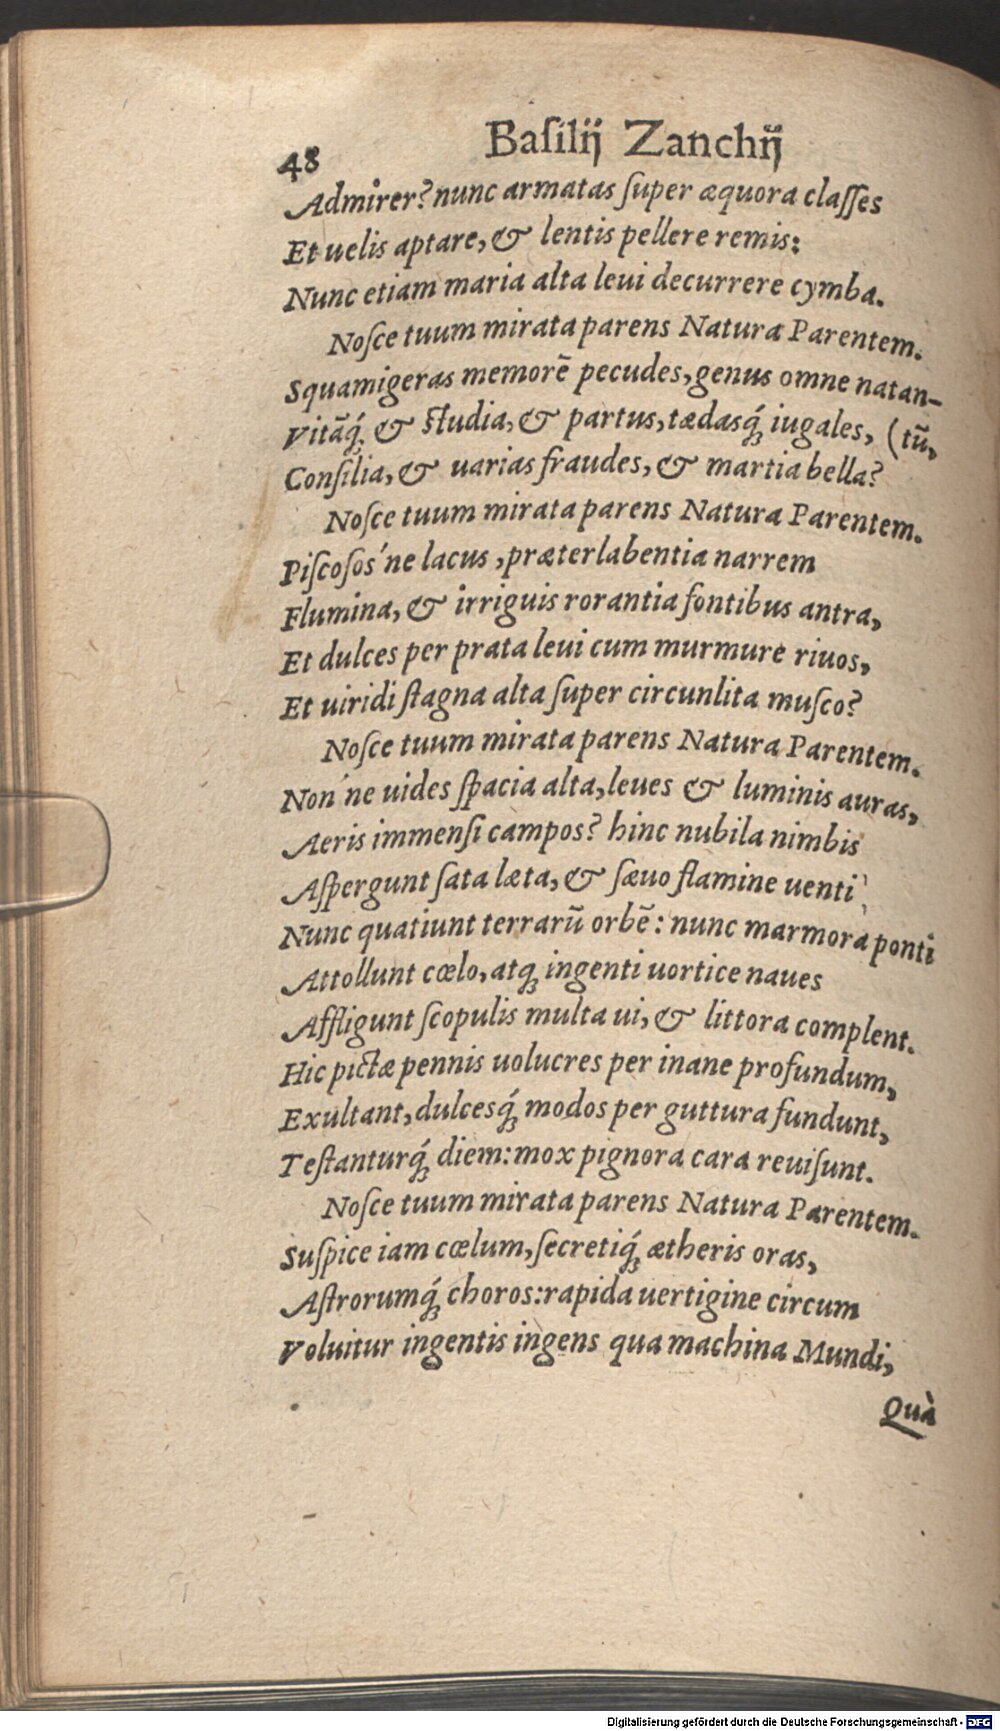 48
Baſilij Zanchij
Admirer? nunc armatas ſuper æquora claſſes
Et uelis aptare, & lentis pellere remis:
Nunc etiam maria alta leui decurrere cymba.
Noſce tuum mirata parens Natura Parentem.
Squamigeras memorē pecudes, genus omne natan-
Vitāq́; & ſtudia, & partus, tædasq́; iugales, (tū,
Conſilia, & uarias fraudes, & martia bella?
Noſce tuum mirata parens Natura Parentem.
Piſcoſos'ne lacus, præterlabentia narrem
Flumina, & irriguis rorantia fontibus antra,
Et dulces per prata leui cum murmure riuos,
Et uiridi ſtagna alta ſuper circunlita muſco?
Noſce tuum mirata parens Natura Parentem.
Non'ne uides ſpacia alta, leues & luminis auras,
Aeris immenſi campos? hinc nubila nimbis
Aſpergunt ſata læta, & ſæuo flamine uenti
Nunc quatiunt terrarū orbē: nunc marmora ponti
Attollunt cœlo, atq; ingenti uortice naues
Affligunt ſcopulis multa ui, & littora complent.
Hic pictæ pennis uolucres per inane profundum,
Exultant, dulcesq́; modos per guttura fundunt,
Teſtanturq́; diem: mox pignora cara reuiſunt.
Noſce tuum mirata parens Natura Parentem.
Suſpice iam cœlum, ſecretiq́; ætheris oras,
Aſtrorumq́; choros: rapida uertigine circum
Voluitur ingentis ingens qua machina Mundi,
Quà
Digitalisierung gefördert durch die Deutsche Forschungsgemeinschaft - DFG